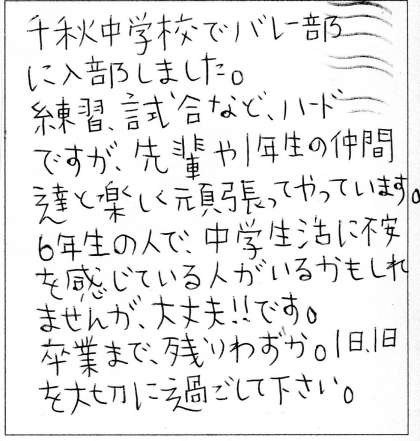 千秋中学校でバレー部
に入部しました。
練習、試合など、ハード
ですが、先輩や1年生の仲間
達と楽しく頑張ってやっています。
6年生の人で、中学生活に不安
を感じている人がいるかもしれ
ませんが、大丈夫!!です。
卒業まで、残りわずか。1日、1日
を大切に過ごして下さい。